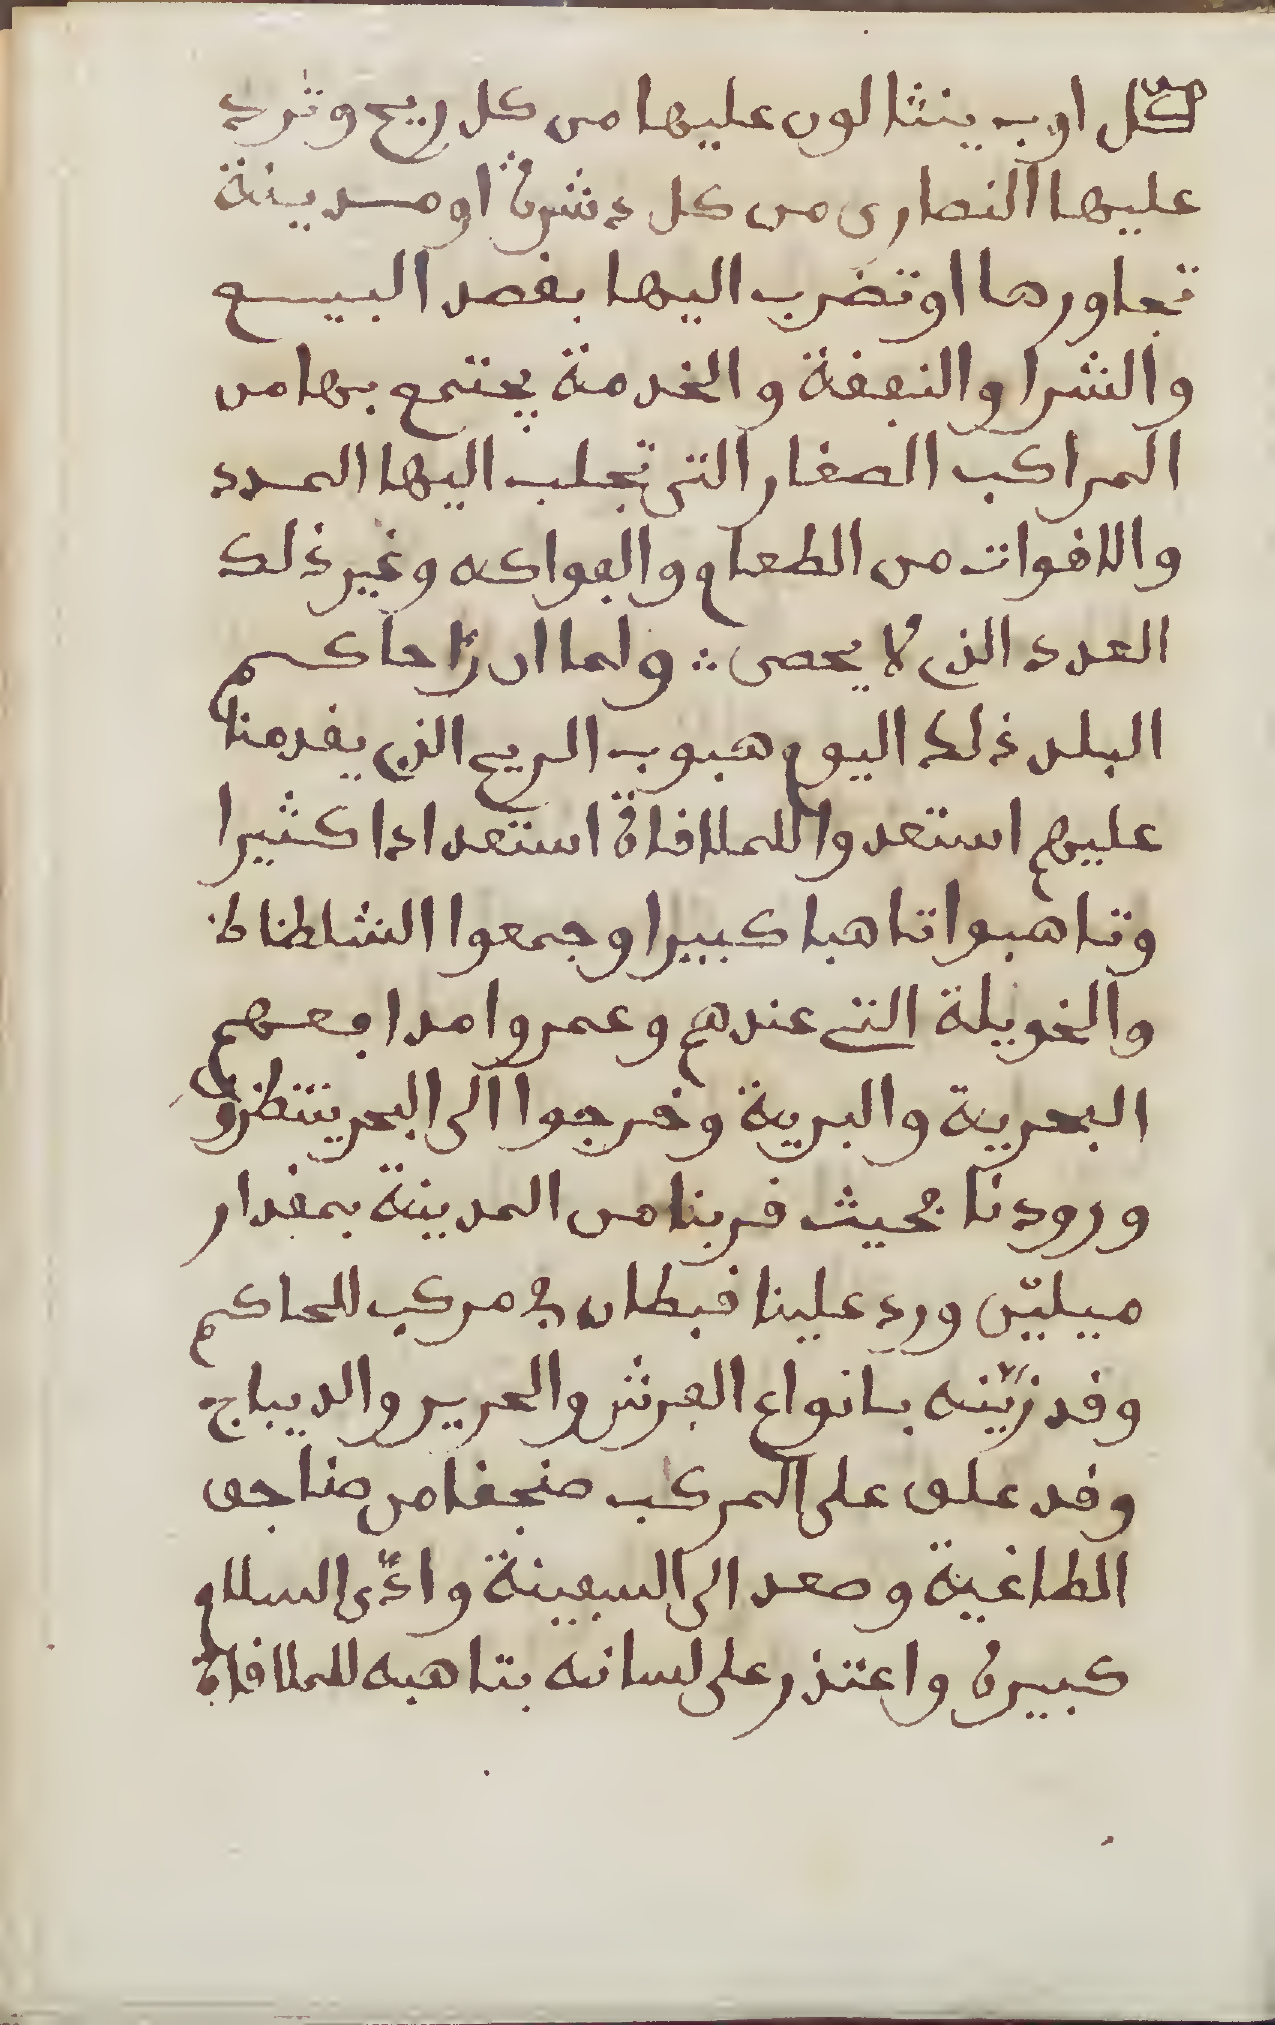 من كل اوب ينثالون عليها من كل ريح وترد
عليها النصارى من كل دشرة او مدينة
تجاورها او تضرب اليها بقصد البيع
والشرا والنفقة والخدمة يجتمع بها من
المراكب الصغار التي تجلب اليها المدد
والاقوات من الطعام والفواكه وغير ذلك
العدد الذي لا يحصى ؞ ولما ان رٵا حاكم
البلد ذلك اليوم هبوب الريح الذي يقدمنا
عليهم استعدوا للملاقاة استعدادا كثيرا
وتاهبوا تاهبا كبيرا وجمعوا الشلطاط
والغويلة التي عندهم وعمروا مدافعهم
البحرية والبرية وخرجوا الى البحر ينتظرو
ورودنا بحيث قربنا من المدينة بمقدار
ميليّن ورد علينا قبطان في مركب للحاكم
وقد زيّنه بانواع الفرش والحرير والديباج
وقد علق على المركب صنجقا من صناجق
الطاغية وصعد الى السفينة وادّى السلام
كبيرة واعتذر على لسانه بتاهبه للملاقاة